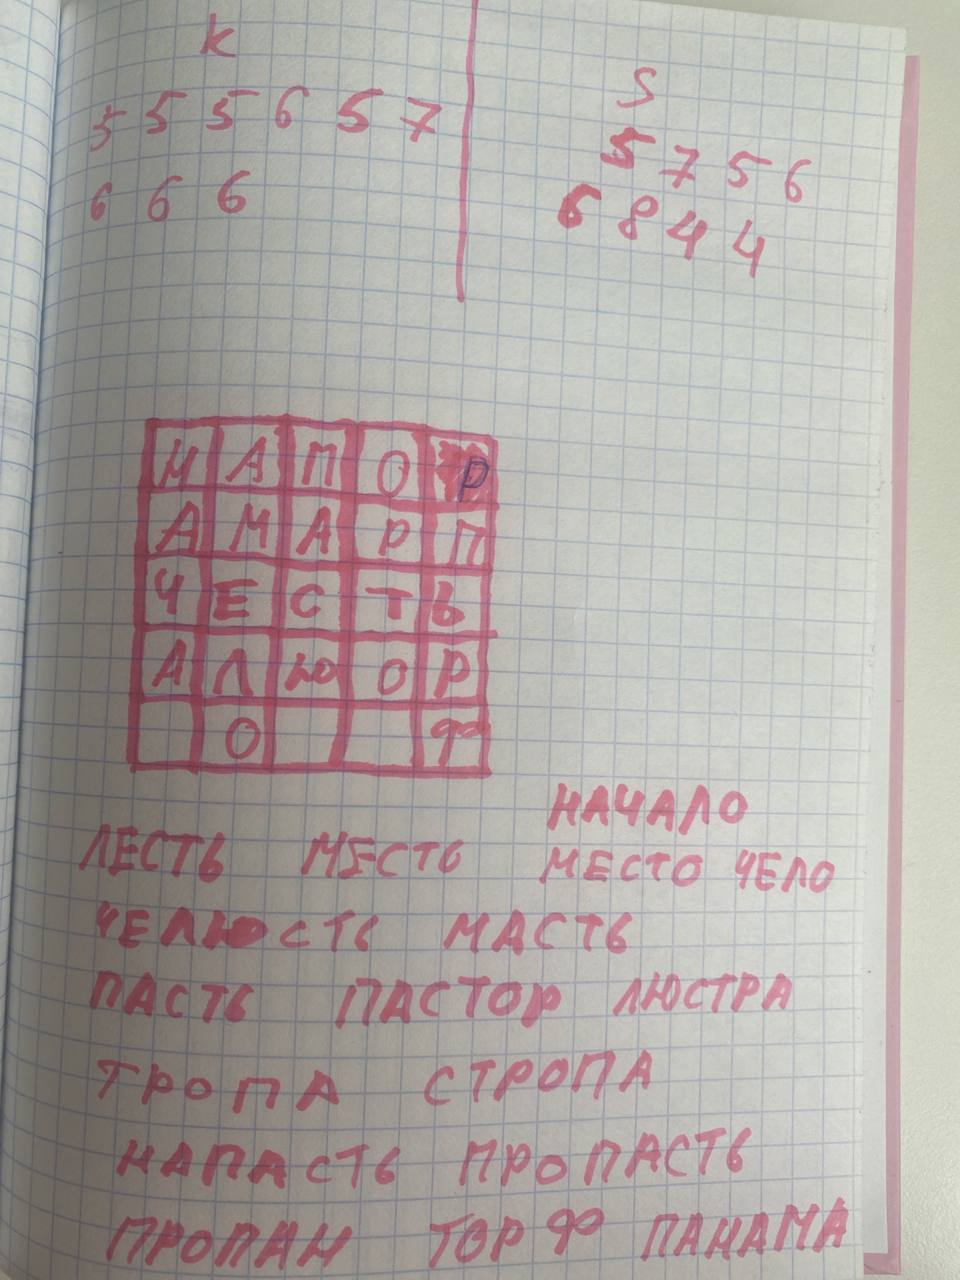 K
5 5 5 6 5 7
6 6 6
S
5 7 5 6
6 8 4 4
Н А П О Р
А М А Р П
Ч Е С Т Ь
А Л Ю О Р
О Ф
НАЧАЛО
ЛЕСТЬ МЕСТЬ МЕСТО ЧЕЛО
ЧЕЛЮСТЬ МАСТЬ
ПАСТЬ ПАСТОР ЛЮСТРА
ТРОПА СТРОПА
НАПАСТЬ ПРОПАСТЬ
ПРОПАН ТОРФ ПАНАМА